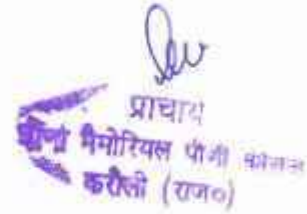 प्राचार्य
मैमोरियल पी.जी. कॉलेज
करौली (राज०)